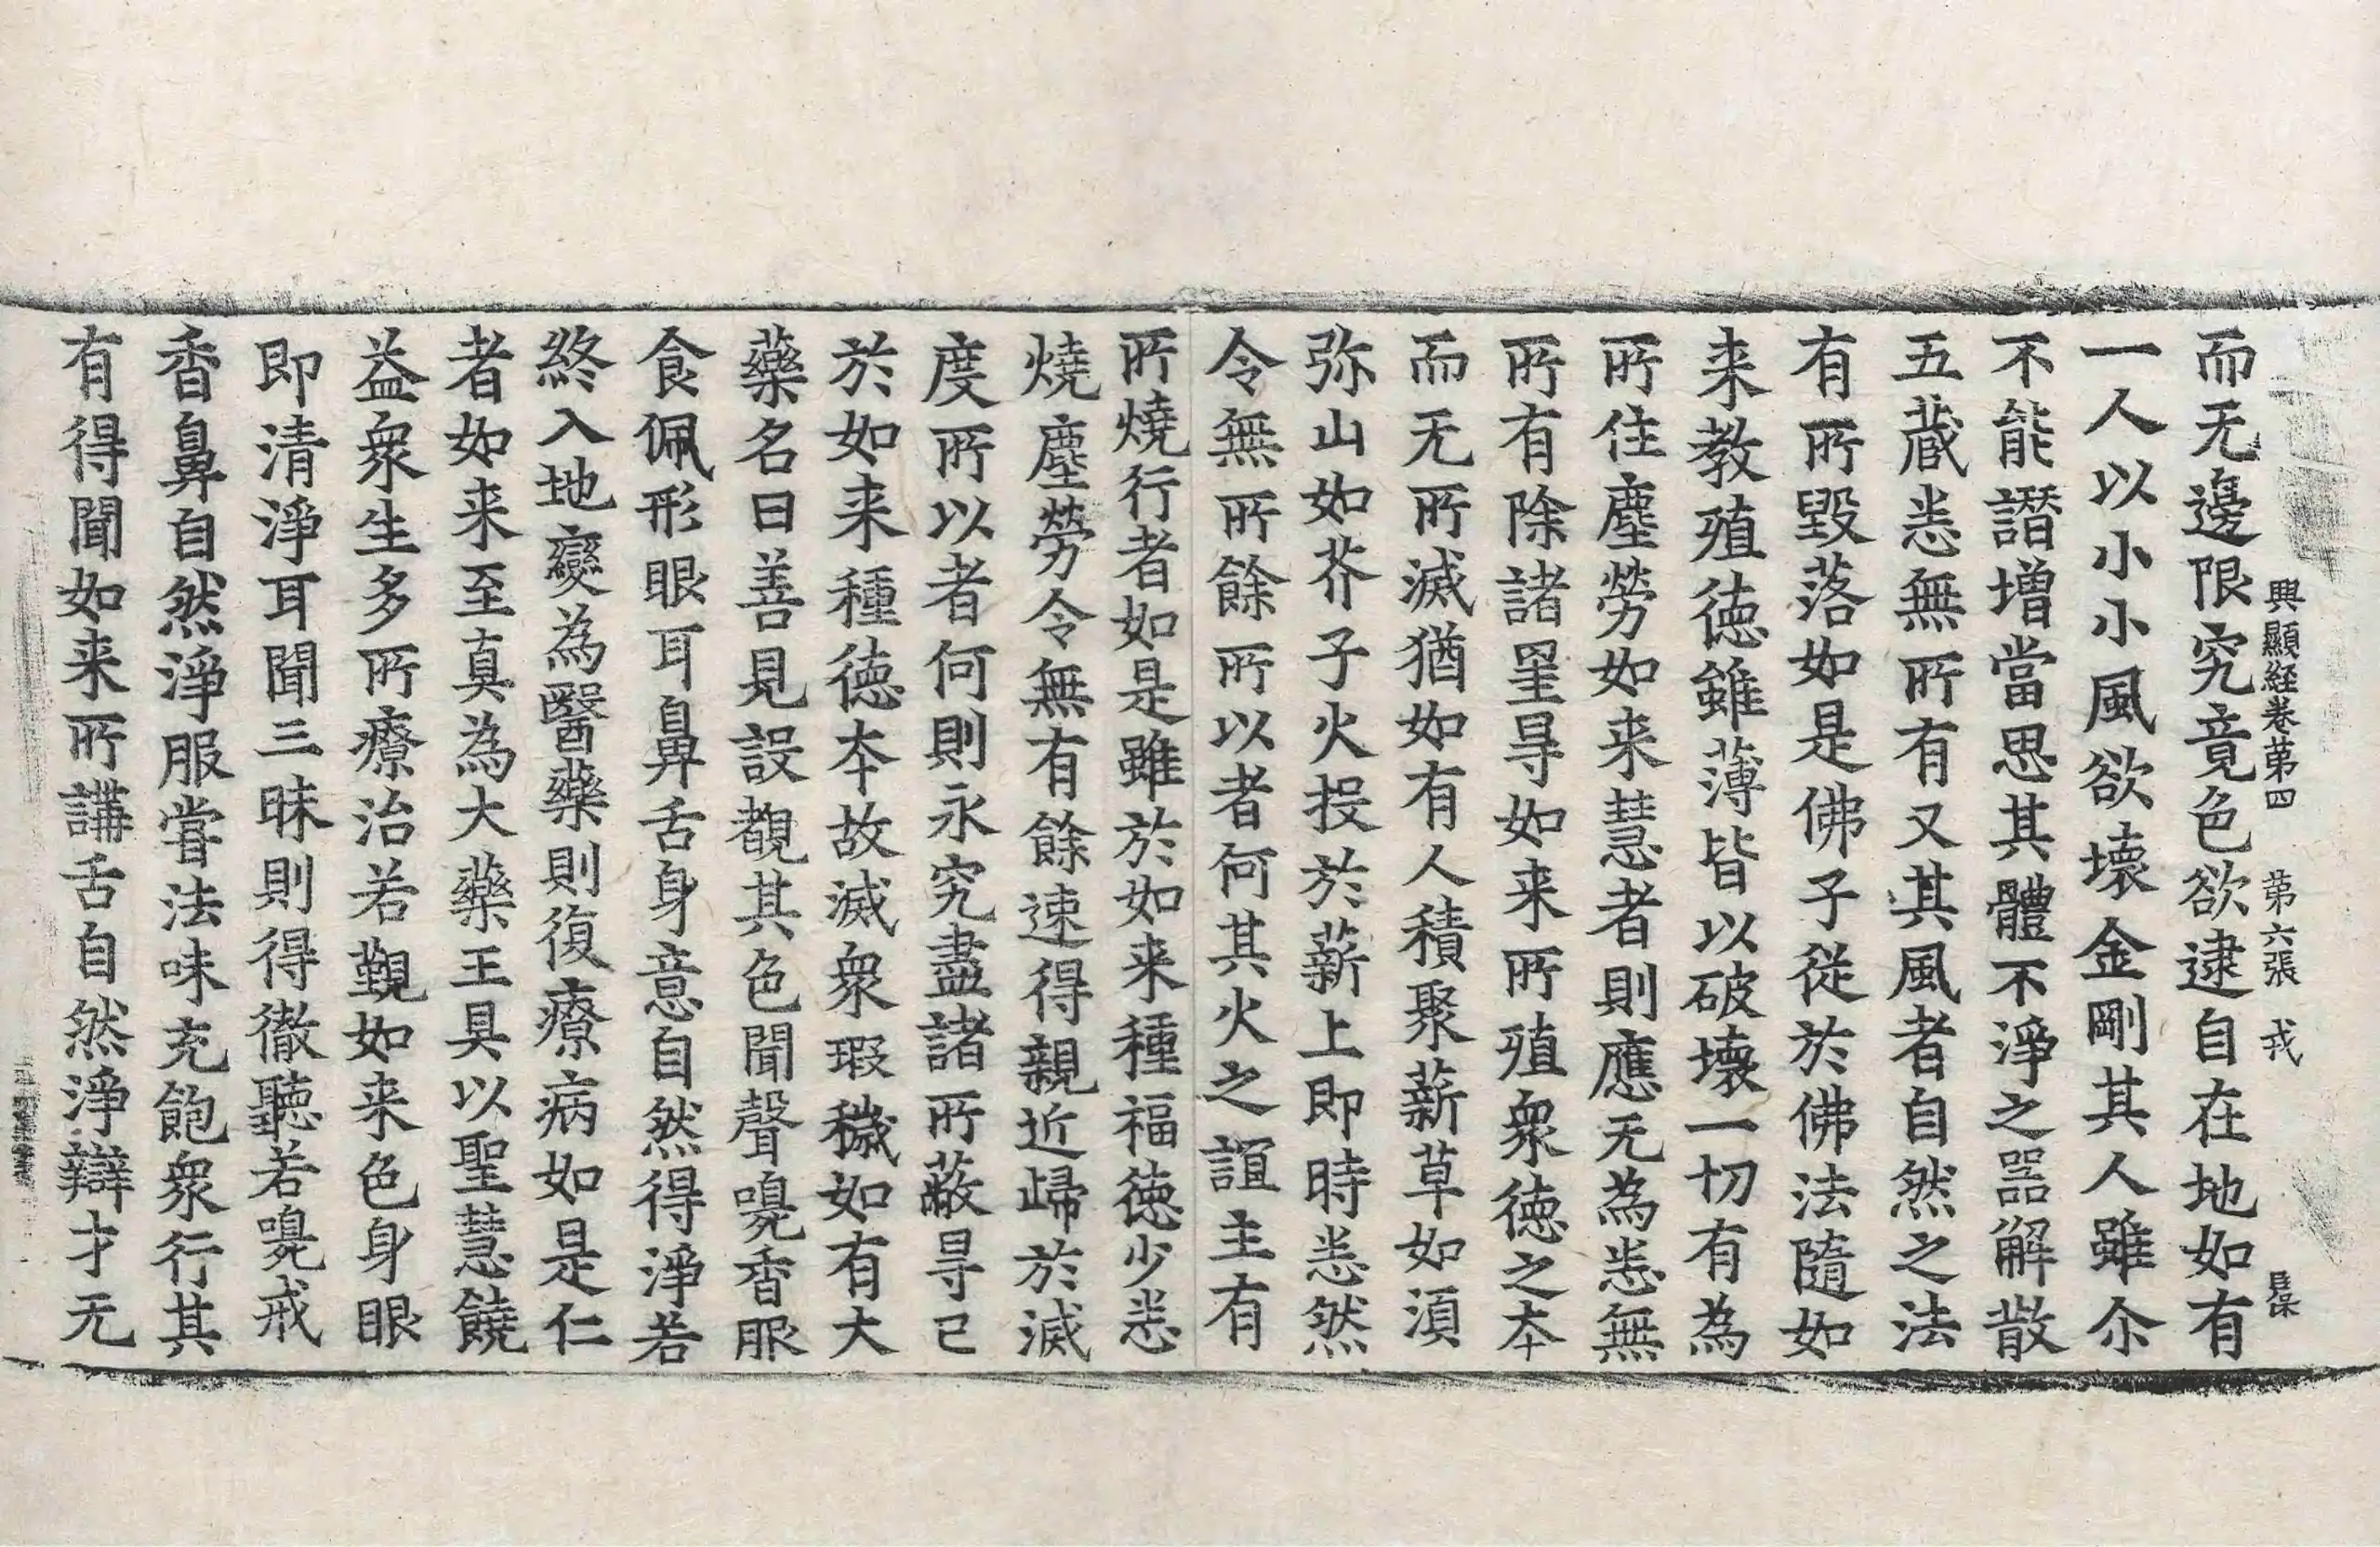 興顯経卷第四　第六張　戎
而无邊限究竟色欲逮自在地如有
一人以小小風欲壞金剛其人雖尒
不能譖增當思其體不淨之器解散
五蔵悉無所有又其風者自然之法
有所毀落如是佛子從於佛法隨如
来教殖徳雖薄皆以破壞一切有為
所住塵勞如来慧者則應无為悉無
所有除諸罣㝵如来所殖衆徳之夲
而无所滅猶如有人積聚薪草如湏
弥山如芥子火投於薪上即時悉然
令無所餘所以者何其火之誼主有
所燒行者如是雖於如来種福徳少悉
燒塵勞令無有餘速得親近歸於滅
度所以者何則永究盡諸所蔽㝵已
於如来種徳夲故滅衆瑕穢如有大
藥名曰善見設覩其色聞聲嗅香服
食佩形眼耳鼻舌身意自然得淨若
終入地變為醫藥則復療病如是仁
者如来至真為大藥王具以聖慧饒
益衆生多所療治若覲如来色身眼
即清淨耳聞三昧則得徹聽若嗅戒
香鼻自然淨服甞法味充飽衆行其
有得聞如来所講舌自然淨辯才无